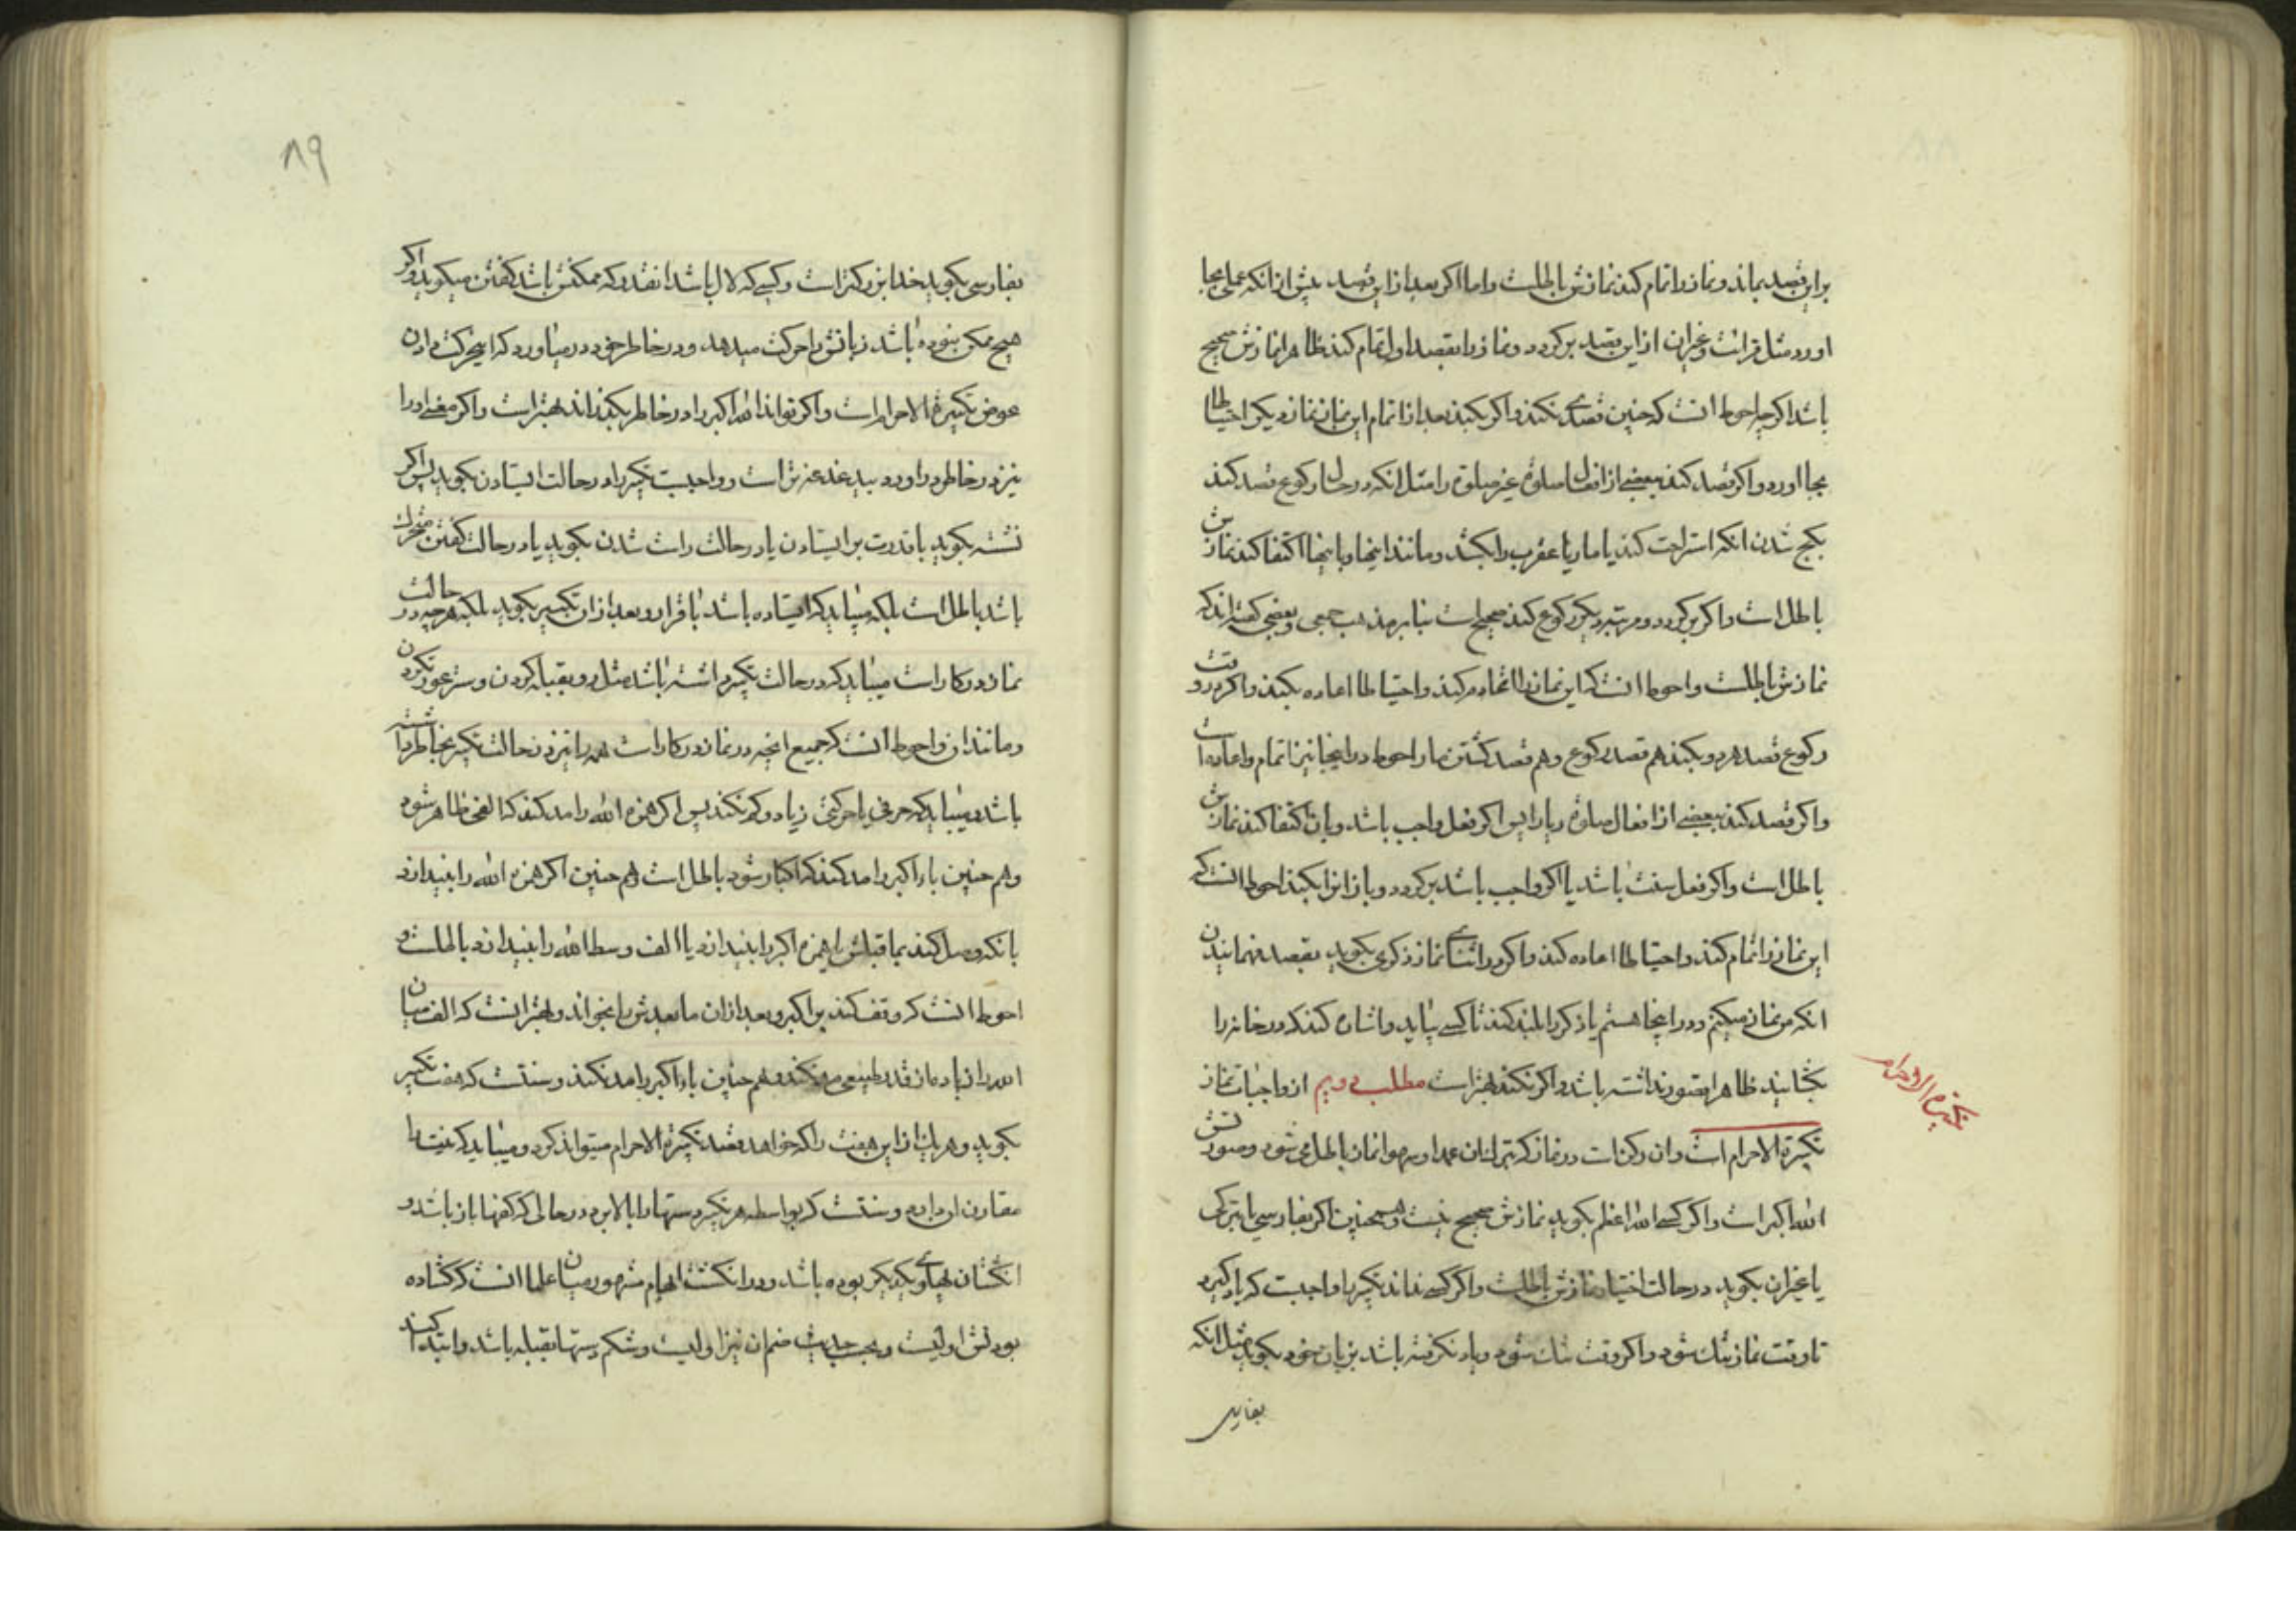 براین قصد بماند و نماز را تمام کند نمازش باطلست و اما اگر بعد از این قصد پیش از انکه عملی بجا
اورد مثل قرائت و غیران از این قصد برکردد و نماز را بقصد اول تمام کند ظاهرا نمازش صحیح
باشد اکرچه احوط انست که چنین قصدی نکند و اکر بکند بعد از اتمام این نماز نماز دیکر احتیاطا
بجا اورد و اکر قصد کند ببعضی از افعال صلوة غیر صلوة را مثل انکه در حال رکوع قصد کند
بکج شدن انکه استراحت کند یا مار یا عقرب را بکشد و مانند اینها و باینها اکتفا کند نمازش
باطل است و اکر برکردد و مرتبه دیکر رکوع کند صحیح است بنابر مذهب جمعی و بعضی کفته اند که
نمازش باطلست و احوط انست که این نماز را اتمام کند و احتیاطا اعاده بکند و اکر در وقت
رکوع قصد هر دو بکند هم قصد رکوع و هم قصد کشتن مار احوط در اینجا نیز اتمام و اعاده است
و اکر قصد کند ببعضی از افعال صلوة ریا را پس اکر فعل واجب باشد و بان اکتفا کند نمازش
باطل است و اکر فعل سنت باشد یا اکر واجب باشد برکردد و باز انرا بکند احوط انست که
این نماز را تمام کند و احتیاطا اعاده کند و اکر در اثنای نماز ذکری بکوید بقصد فهمانیدن
انکه من نماز میکنم و در اینجا هستم یا ذکر را بلند کند تا کسی بیاید و اشاره کند که در خانه را
بکشایند ظاهرا قصور نداشته باشد و اکر نکند بهتر است مطلب دویم از واجبات نماز
تکبیرة الاحرام
تکبیرة الاحرام است و ان رکن است در نماز که بترک ان عمدا و سهوا نماز باطل می شود و صورتش
الله اکبر است و اکر کسی الله اعظم بکوید نمازش صحیح نیست و همچنین اکر بفارسی یا بترکی
یا غیران بکوید در حالت اختیار نمازش باطلست و اکر کسی نداند تکبیر را واجبست که یاد کیرد
تا وقت نماز تنک شود و اکر وقت تنک شود و یاد نکرفته باشد بزبان خود بکوید مثل انکه
بفارسی
۸۹
بفارسی بکوید خدا بزرکتر است و کسی که لال باشد انقدر که ممکنش باشد کفتن میکوید و اکر
هیچ ممکن نبوده باشد زبانش را حرکت میدهد و در خاطر خود در میاورد که این حرکت دادن
عوض تکبیرة الاحرام است و اکر تواند الله اکبر را در خاطر بکذراند بهتر است و اکر معنی او را
نیز در خاطر در اورد بهتر است و واجبست تکبیر را در حالت ایستادن بکوید پس اکر
نشسته بکوید با قدرت بر ایستادن یا در حالت راست شدن بکوید یا در حالت کفتن متحرک
باشد باطل است بلکه میباید که ایستاده باشد با قرار و بعد از ان تکبیر بکوید بلکه هرچه در حالت
نماز در کار است میباید که در حالت تکبیر داشته باشد مثل رو بقبله کردن و ستر عورت کردن
و مانند ان و احوط انست که جمیع انچه در نماز در کار است همه را نیز در حالت تکبیر بخاطر داشته
باشد و میباید که حرفی یا حرکتی زیاد و کم نکند پس اکر همزه الله را مد کند که الفی ظاهر شود
و هم چنین باء اکبر را مد کند که اکبار شود باطل است و هم چنین اکر همزه الله را بنیدازد
بانکه وصل کند بما قبلش یا همزه اکبر را بنیدازد یا الف وسط الله را بنیدازد باطلست و
احوط انست که وقف کند بر اکبر و بعد از ان ما بعدش را بخواند و بهتر انست که الف میان
الله را زیاده از قدر طبیعی مد نکند و هم چنین باء اکبر را مد نکند و سنتست که هفت تکبیر
بکوید و هر یک از این هفت را که خواهد قصد تکبیرة الاحرام میتواند کرد و میباید که نیت را
مقارن او دارد و سنتست که بواسطه هر تکبیر دستها را بالا برد در حالی که کفها باز باشد و
انکشتان بهلوی یکدیکر بوده باشد و در انکشت ابهام مشهور میان علما انست که کشاده
بودنش اولیست و بحسب حدیث ضم ان نیز اولیست و شکم دستها بقبله باشد و ابتدا کند